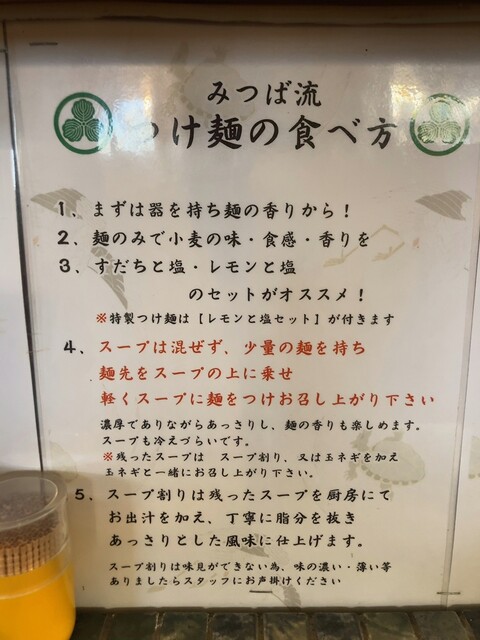 みつば流
つけ麺の食べ方
1、まずは器を持ち麺の香りから!
2、麺のみで小麦の味・食感・香りを
3、すだちと塩・レモンと塩
のセットがオススメ!
※特製つけ麺は【レモンと塩セット】が付きます
4、スープは混ぜず、少量の麺を持ち
麺先をスープの上に乗せ
軽くスープに麺をつけお召し上がり下さい
濃厚でありながらあっさりし、麺の香りも楽しめます。
スープも冷えづらいです。
※残ったスープは スープ割り、又は玉ネギを加え
玉ネギと一緒にお召し上がり下さい。
5、スープ割りは残ったスープを厨房にて
お出汁を加え、丁寧に脂分を抜き
あっさりとした風味に仕上げます。
スープ割りは味見ができない為、味の濃い・薄い等
ありましたらスタッフにお声掛けください